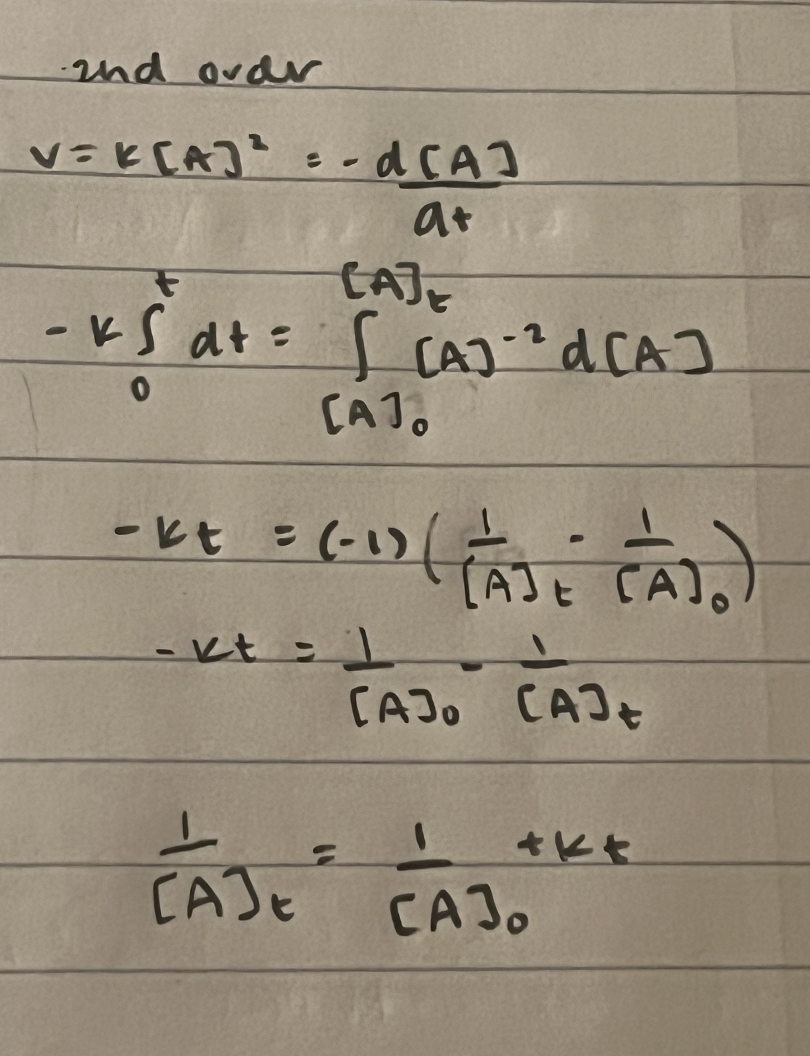 2nd order
v = k[A]² = - d[A] / dt
- k ∫₀ᵗ dt = ∫_{[A]₀}^{[A]ₜ} [A]⁻² d[A]
- kt = (-1) ( 1/[A]ₜ - 1/[A]₀ )
- kt = 1/[A]₀ - 1/[A]ₜ
1/[A]ₜ = 1/[A]₀ + kt